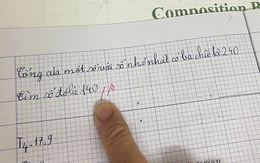 Composition B
Tổng của một số với số nhỏ nhất có ba chữ là 240
Tìm số đó là 140
T4. 17.9